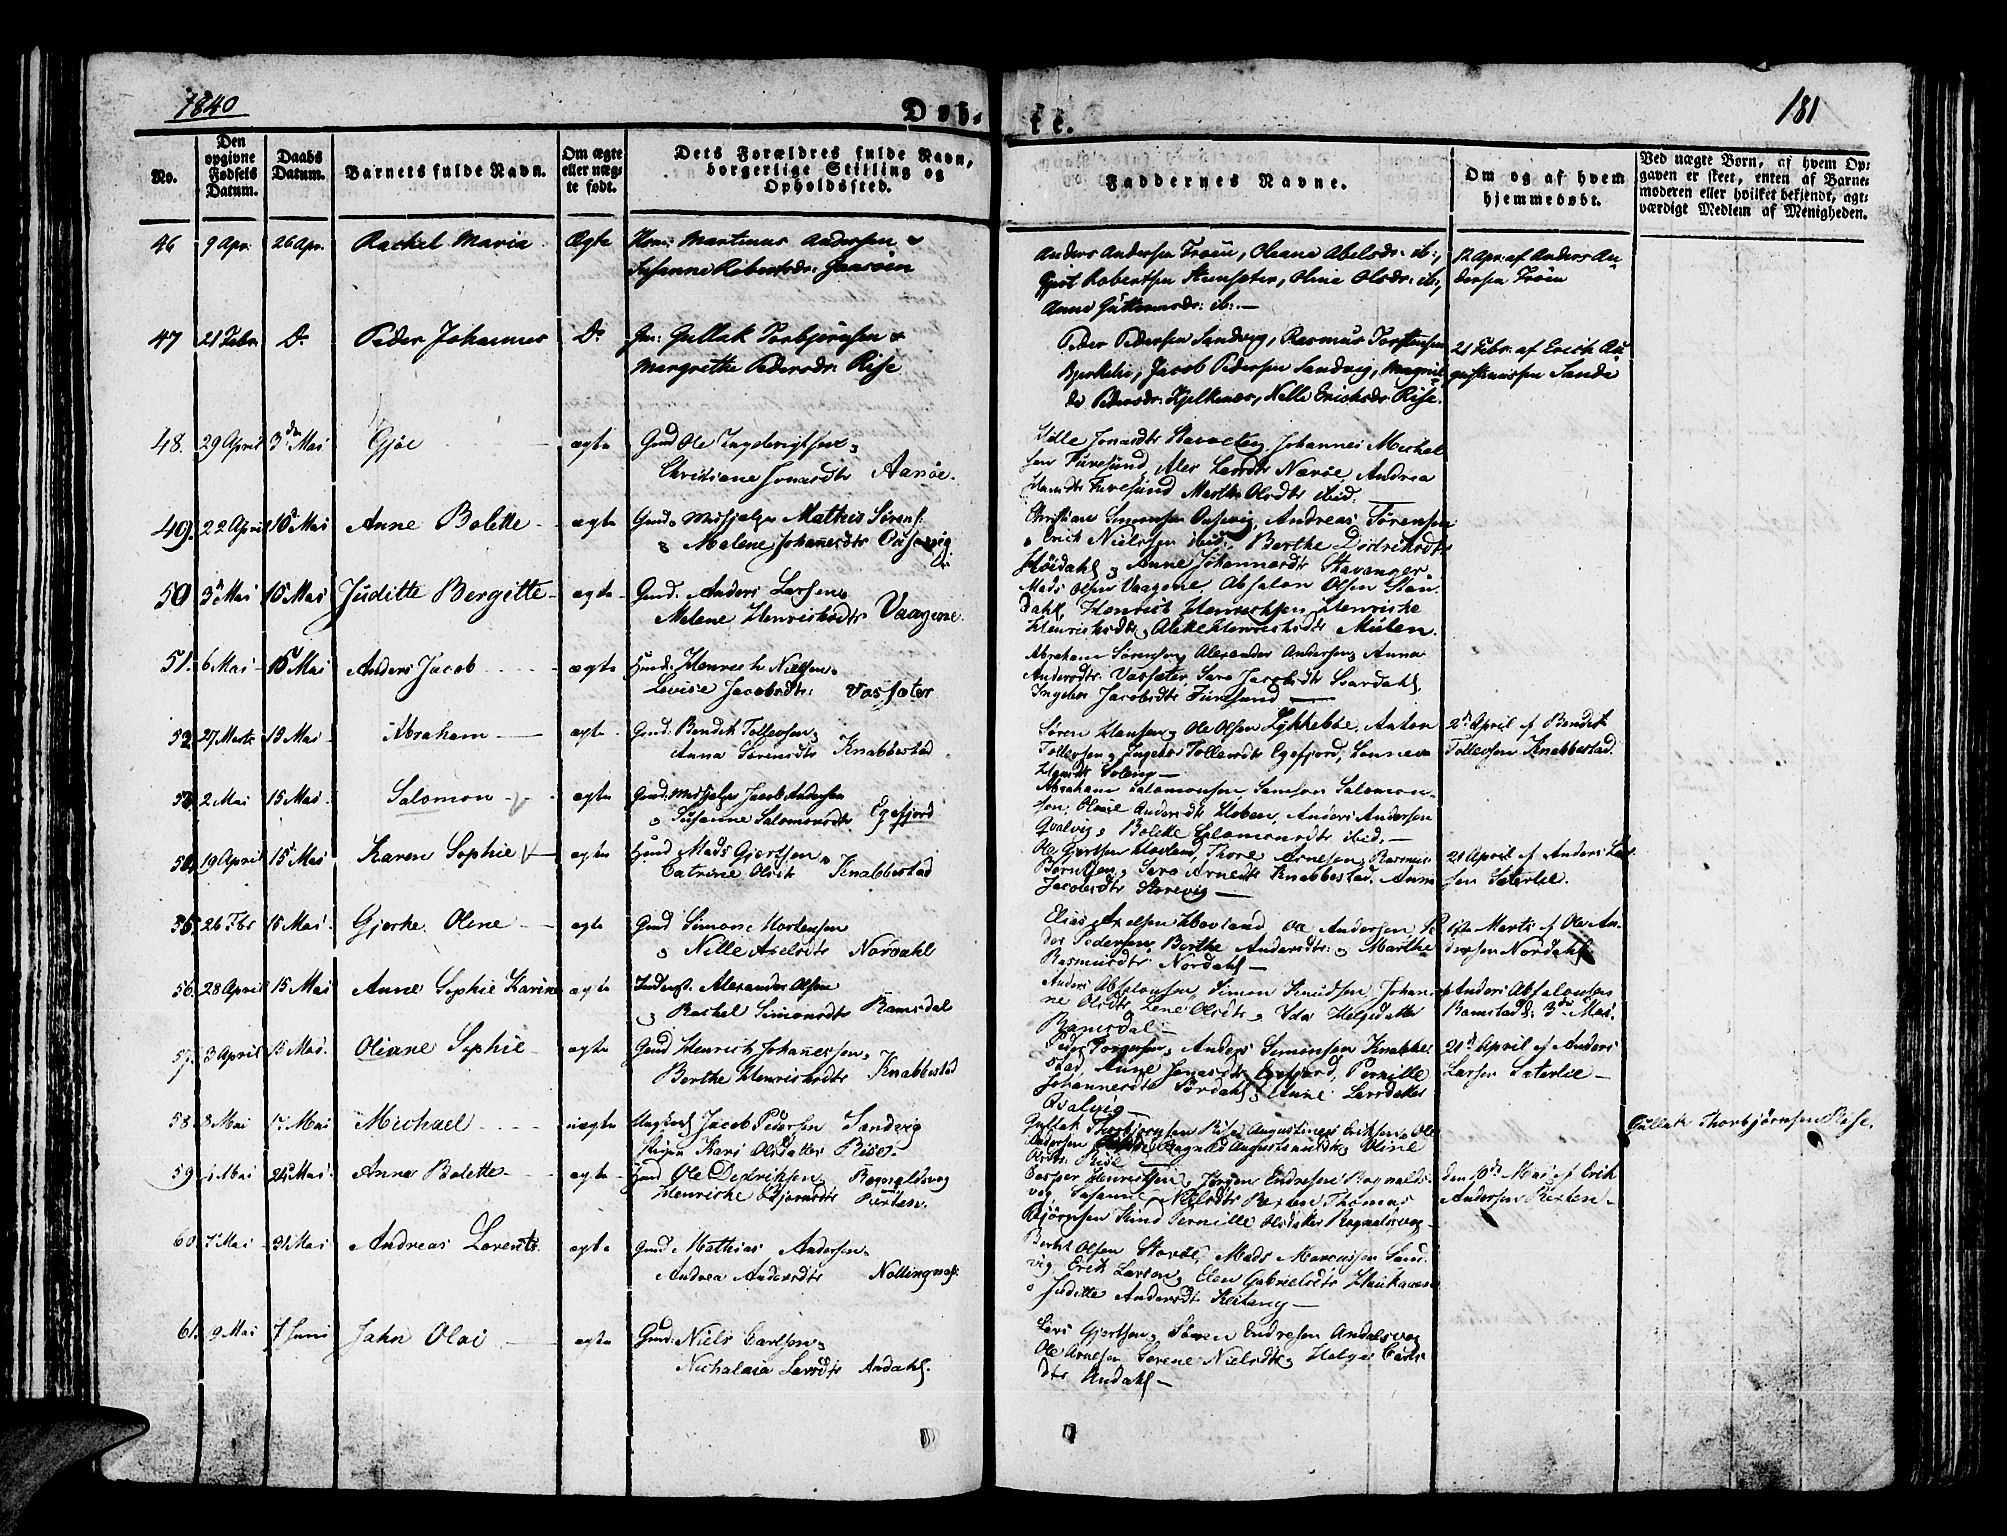 1840
Døb-
te.
181
No.
Den opgivne Fødsels Datum.
Daabs Datum.
Barnets fulde Navn.
Om ægte eller uæg- te født.
Dets Forældres fulde Navn, borgerlige Stilling og Opholdssted.
Faddernes Navne.
Om og af hvem hjemmedøbt.
Ved uægte Børn, af hvem Op- gaven er skeet, enten af Barne- moderen eller hvilket bekjendt, agt- værdigt Medlem af Menigheden.
46 9 Apr: 26 Apr. Rachel Maria Ægte Martinus Andersen &
Susanne Robertsdr:
Anders Andersen Trøen, Oleane Abelsdr: ib:,
Gjert Robertsen Steensæter, Oline Olsdr: ib:,
Anne ib:
12 Apr: af Anders An-
dersen Trøen
47 21 Febr. Do Peder Johannes Do Gm: Gullak Torbjørnsen &
Margrethe Pedersdr: Rise
Peder Pedersen Sandvig, Rasmus Torstensen
Bjerkelie, Jacob Pedersen Sandvig, Magnil-
de Pedersdr: Kjelkenes, Nille Erichsdr Rise.
21 Febr: af Erich Au-
gustinussen Sande
48. 29 April 3die Mai Gjøe ægte Gmd Ole Ingebrigtsen
Christiane Jonasdtr Aarsøe.
Johannes Michel
sen Furesund, Larsdtr Nærøe, Andrea
Furesund Marthe Olsdtr ibid.
49. 22 April 10d Mai Anne Bolette ægte Gmd. Mathias Sørens:
& Malene Johannesdtr
Christian Simonsen Andreas Sørensen
& Erich Nielssen ibid, Berthe Didriksdtr
Høidahl, & Anne Johannesdtr Stavanger
50 3d Mai 10 Mai Juditte Bergitte ægte Gmd. Anders Larsen &
Malene Henrichsdtr Vaagene.
Mads Olsen Vaagene, Absalon Olsen Stan-
dahl, Henrich Henrichsen, Henriche
Henrichsdtr, Alette Henrichsdtr Multen.
51. 6 Mai 10 Mai Anders Jacob ægte Huusd: Henrich Nielsen &
Lovise Jacobsdtr: Vassæter
Abraham Sørensen, Alexander Andersen, Anna
Andersdtr: Vassæter, Sara Jacobsdtr Aardahl,
Ingebor Jacobsdtr Furesund
52. 27 Marts 15 Mai Abraham ægte Gmd: Bendik Tollevsen &
Anna Sørensdtr Knabbestad
Søren Hansen, Ole Olsen Lykkeboe, Anton
Tollevsen, Ingebor Tollevsdtr Egefjord,
Soleng
2d April af Bendik
Tollevsen Knabbestad.
53 2 Mai 15 Mai. Salomon ægte Gmd: Jacob Andersen
& Susanne Salomonsdtr Egefjord
Abraham Salomonsen, Samson Salomon-
sen, Andersdtr Anders Andersen
Qvalvig & Bolette Salomonsdtr ibid.
54 19 April 15 Mai Karen Sophie ægte Huusd Mads Gjertsen &
Catrine Olsdtr Knabbestad
Ole Gjertsen Thore Arnesen, Rasmus
Berntsen, Sara Arnesdtr Knabbestad, Anne
Jacobsdtr Storevig
21 April af Anders Lar-
sen Sæterlie.
55. 26 Fbr 15 Mai Gjerke Oline ægte Gmd Simon Mortensen
& Nille Axelsdtr Nordahl
Elias Axelsen Hovland, Ole Andersen, Pe-
der Pedersen, Berthe Andersdtr: & Marthe
Rasmusdtr Nordahl
Marts af Ole An-
dersen Nordahl
56. 28 April 15 Mai Anne Sophie Karine ægte Inderst. Alexander Olsen
& Rachel Simonsdtr Ramsdal
Anders Absalonsen, Simon Knudsen, Johan-
ne Olsdtr, Lene Olsdtr, Ida Helgedatter
Ramsdal
af Anders Absalonsen
Ramstad: 3die Mai.
57. 3 April 15 Mai. Oliane Sophie ægte Gmd Henrich Johannesen &
Berthe Henrichsdtr Knabbestad
Peder Torgersen, Anders Simonsen Knabbe-
stad, Anne Jonasdtr Egefjord, Pernille
Johannesdtr Sørdahl & Anne Larsdatter
Qvalvig
21d April af Anders
Larsen Sæterlie
58 8 Mai 17 Mai Michael uægte Jacob Pedersen Sandvig
Pigen Kari Olsdatter Rise
Gullak Thorbjørnsen Rise, Augustinus Eriksen, Ole
Andersen Ragnild Augustinusdtr, Oline
Olsdtr: Rise
Gullak Thorbjørnsen Rise.
59 Mai 24d Mai Anne Bolette ægte Gmd Ole Didriksen Rognaldsvog
Henriche Bjørnsdtr Rixten.
Casper Henrichsen, Jørgen Endresen Rognalds-
vog, Susanne Nielsdtr Rixten, Thomas
Bjørnsen Kind, Pernille Olsdatter Rognaldsvog
den 10de Mai af Erik
Andersen Rixten
60 7 Mai 31 Mai Andreas Lorents ægte Gmd. Mathias Andersen &
Andrea Andersdtr Nollingnæs:
Olsen Storøe, Mads Marcussen Sand-
vig, Erik Larsen, Elen Gabrielsdtr Haukaaen
& Juditte Andersdtr
61. 9 Mai 7 Juni John Olai ægte Gmd: Niels Carlsen &
Nicholaia Larsdtr Andahl.
Lars Gjertsen, Søren Endresen Andalsvog
Ole Arnesen, Serene Nielsdtr, Helge Carls-
dtr Andahl